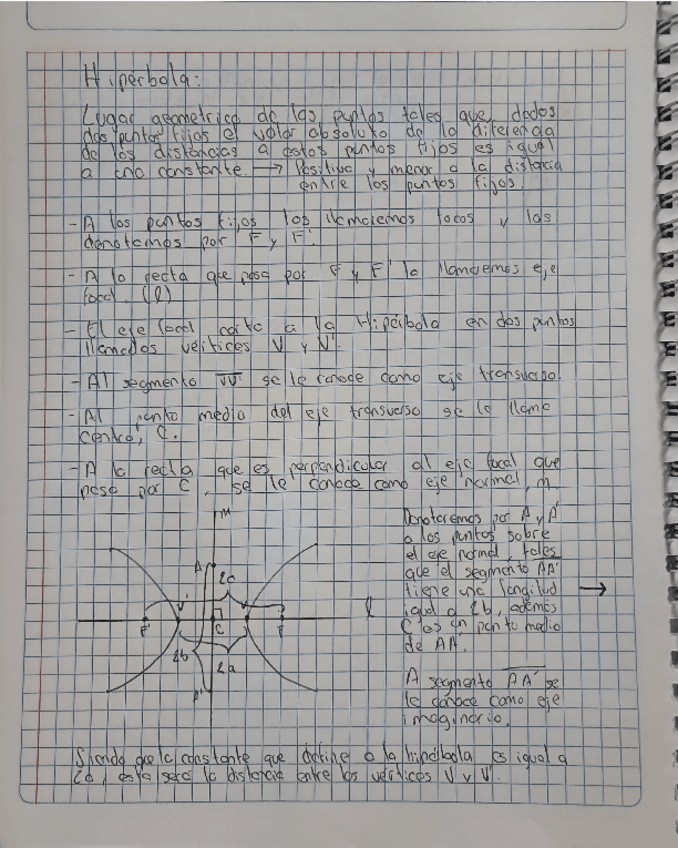 Hiperbola:
Lugar geometrico de los puntos tales que, dados
dos puntos fijos el valor absoluto de la diferencia
de las distancias a estos puntos fijos es igual
a una constante. → Positiva y menor a la distancia
entre los puntos fijos.
- A los puntos fijos los llamaremos focos y los
denotamos por F y F'.
- A la recta que pasa por F y F' la llamaremos eje
focal. (l)
- El eje focal corta a la Hipérbola en dos puntos
llamados vertices V y V'.
- Al segmento VV' se le conoce como eje transverso.
- Al punto medio del eje transverso se le llama
centro, C.
- A la recta que es perpendicular al eje focal que
pasa por C, se le conoce como eje normal, m.
Denotaremos por A y A'
a los puntos sobre
el eje normal, tales
que el segmento AA'
tiene una longitud →
igual a 2b, además
C es un punto medio
de AA'.
A segmento AA' se
le conoce como eje
imaginario.
m
A
2c
V'
l
F'
C
F
2b
2a
A'
Siendo que la constante que define a la hipérbola es igual a
2a, esta será la distancia entre los vértices V y V'.